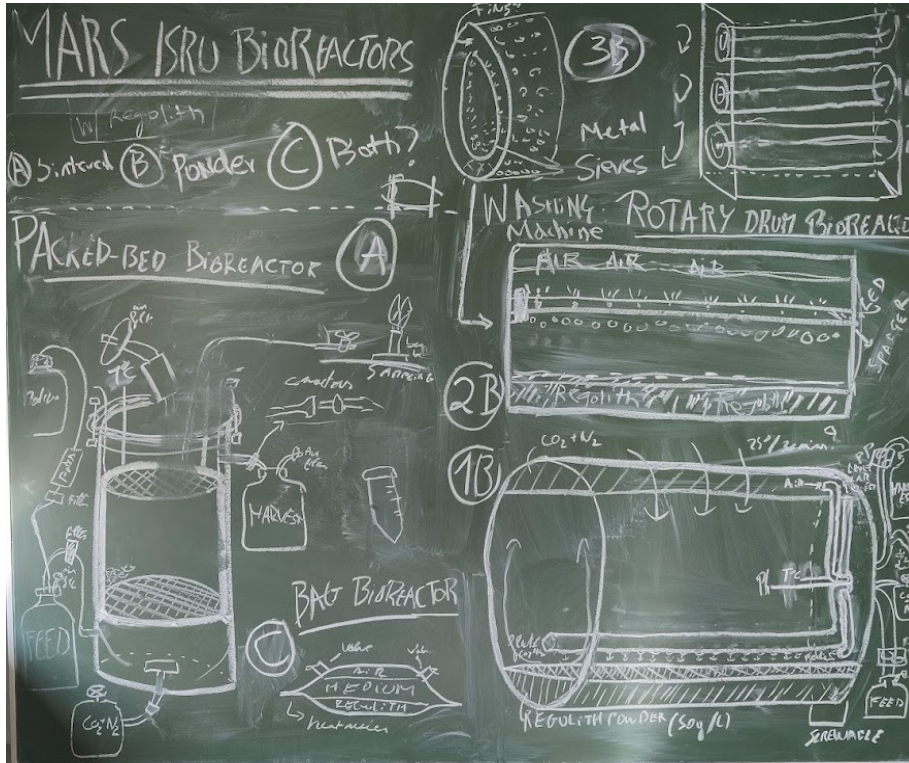 MARS ISRU BIOREACTORS
W/ Regolith
A Sintered B Powder C Both?
PACKED-BED BIOREACTOR A
SAMPLING
HARVEST
FEED
CO2 N2
C BAG BIOREACTOR
AIR
MEDIUM
REGOLITH
FINS
3B
Metal
Sieves
WASHING
Machine
ROTARY DRUM BIOREACT
AIR AIR AIR
BED
SPARGER
2B
Regolith Regolith
1B
CO2 + N2
Air
PH
T°C
REGOLITH POWDER (50g/L)
FEED
SCREWABLE